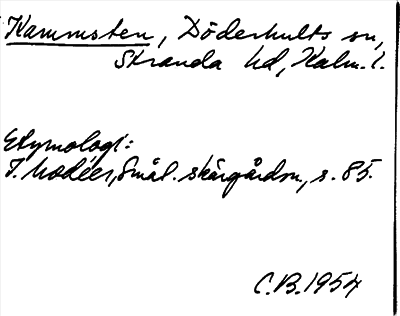 Kammsten, Döderhults sn,
Stranda hd, Kalm. l.
Etymologi:
I. Modéer, Smål. skärgårdsn, s. 85.
C.B. 1954